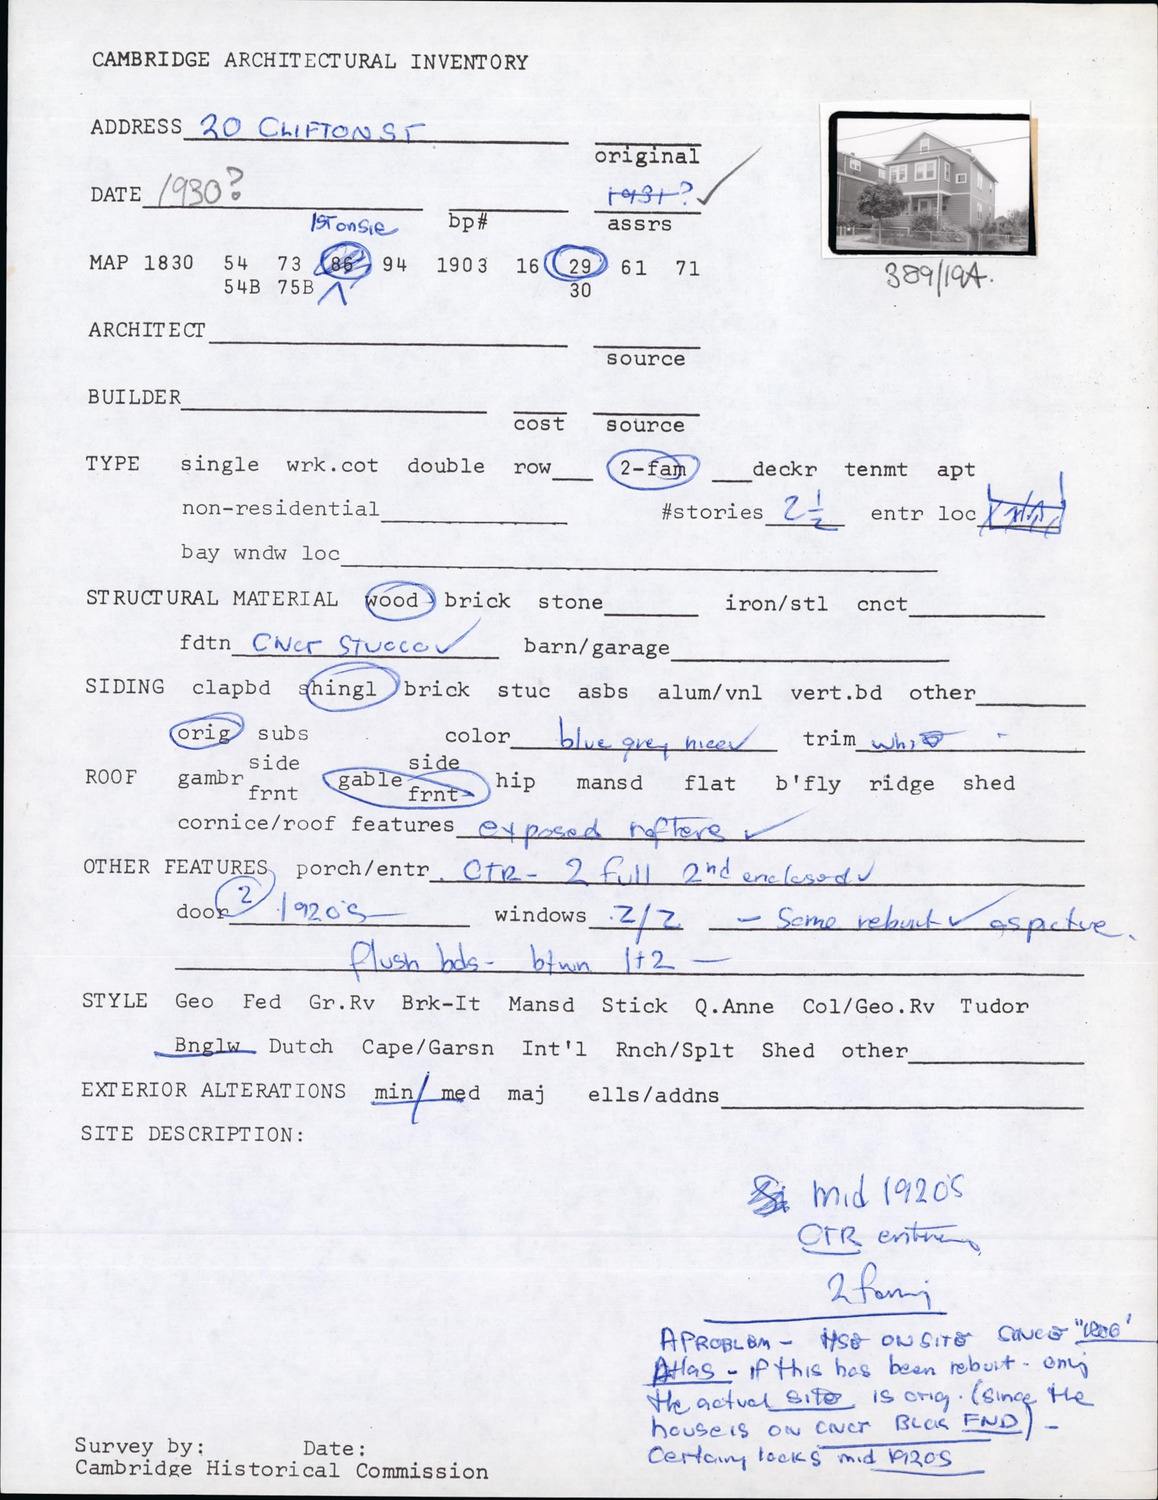 CAMBRIDGE ARCHITECTURAL INVENTORY
ADDRESS 20 CLIFTON ST
original
DATE 1930? 1931?
1ST on site bp# assrs
MAP 1830 54 73 86 94 1903 16 29 61 71
54B 75B 30
389/19A.
ARCHITECT
source
BUILDER
cost source
TYPE single wrk.cot double row 2-fam deckr tenmt apt
non-residential #stories 2 1/2 entr loc
bay wndw loc
STRUCTURAL MATERIAL wood brick stone iron/stl cnct
fdtn CNCT STUCCO ✓ barn/garage
SIDING clapbd shingl brick stuc asbs alum/vnl vert.bd other
orig subs color blue grey nice ✓ trim white
side side
ROOF gambr gable hip mansd flat b'fly ridge shed
frnt frnt
cornice/roof features exposed rafters ✓
OTHER FEATURES porch/entr. CTR - 2 full 2nd enclosed ✓
door 2 1920's windows 2/2 - Some rebuilt ✓ as picture.
flush bds - btwn 1+2 —
STYLE Geo Fed Gr.Rv Brk-It Mansd Stick Q.Anne Col/Geo.Rv Tudor
Bnglw Dutch Cape/Garsn Int'l Rnch/Splt Shed other
EXTERIOR ALTERATIONS min/med maj ells/addns
SITE DESCRIPTION:
mid 1920's
CTR entrance
2 family
A PROBLEM - HSE ON SITE SINCE "1886"
Atlas - if this has been rebuilt - only
the actual site is orig. (since the
house is on CNCT BLCK FND) -
Certainly looks mid 1920s
Survey by: Date:
Cambridge Historical Commission